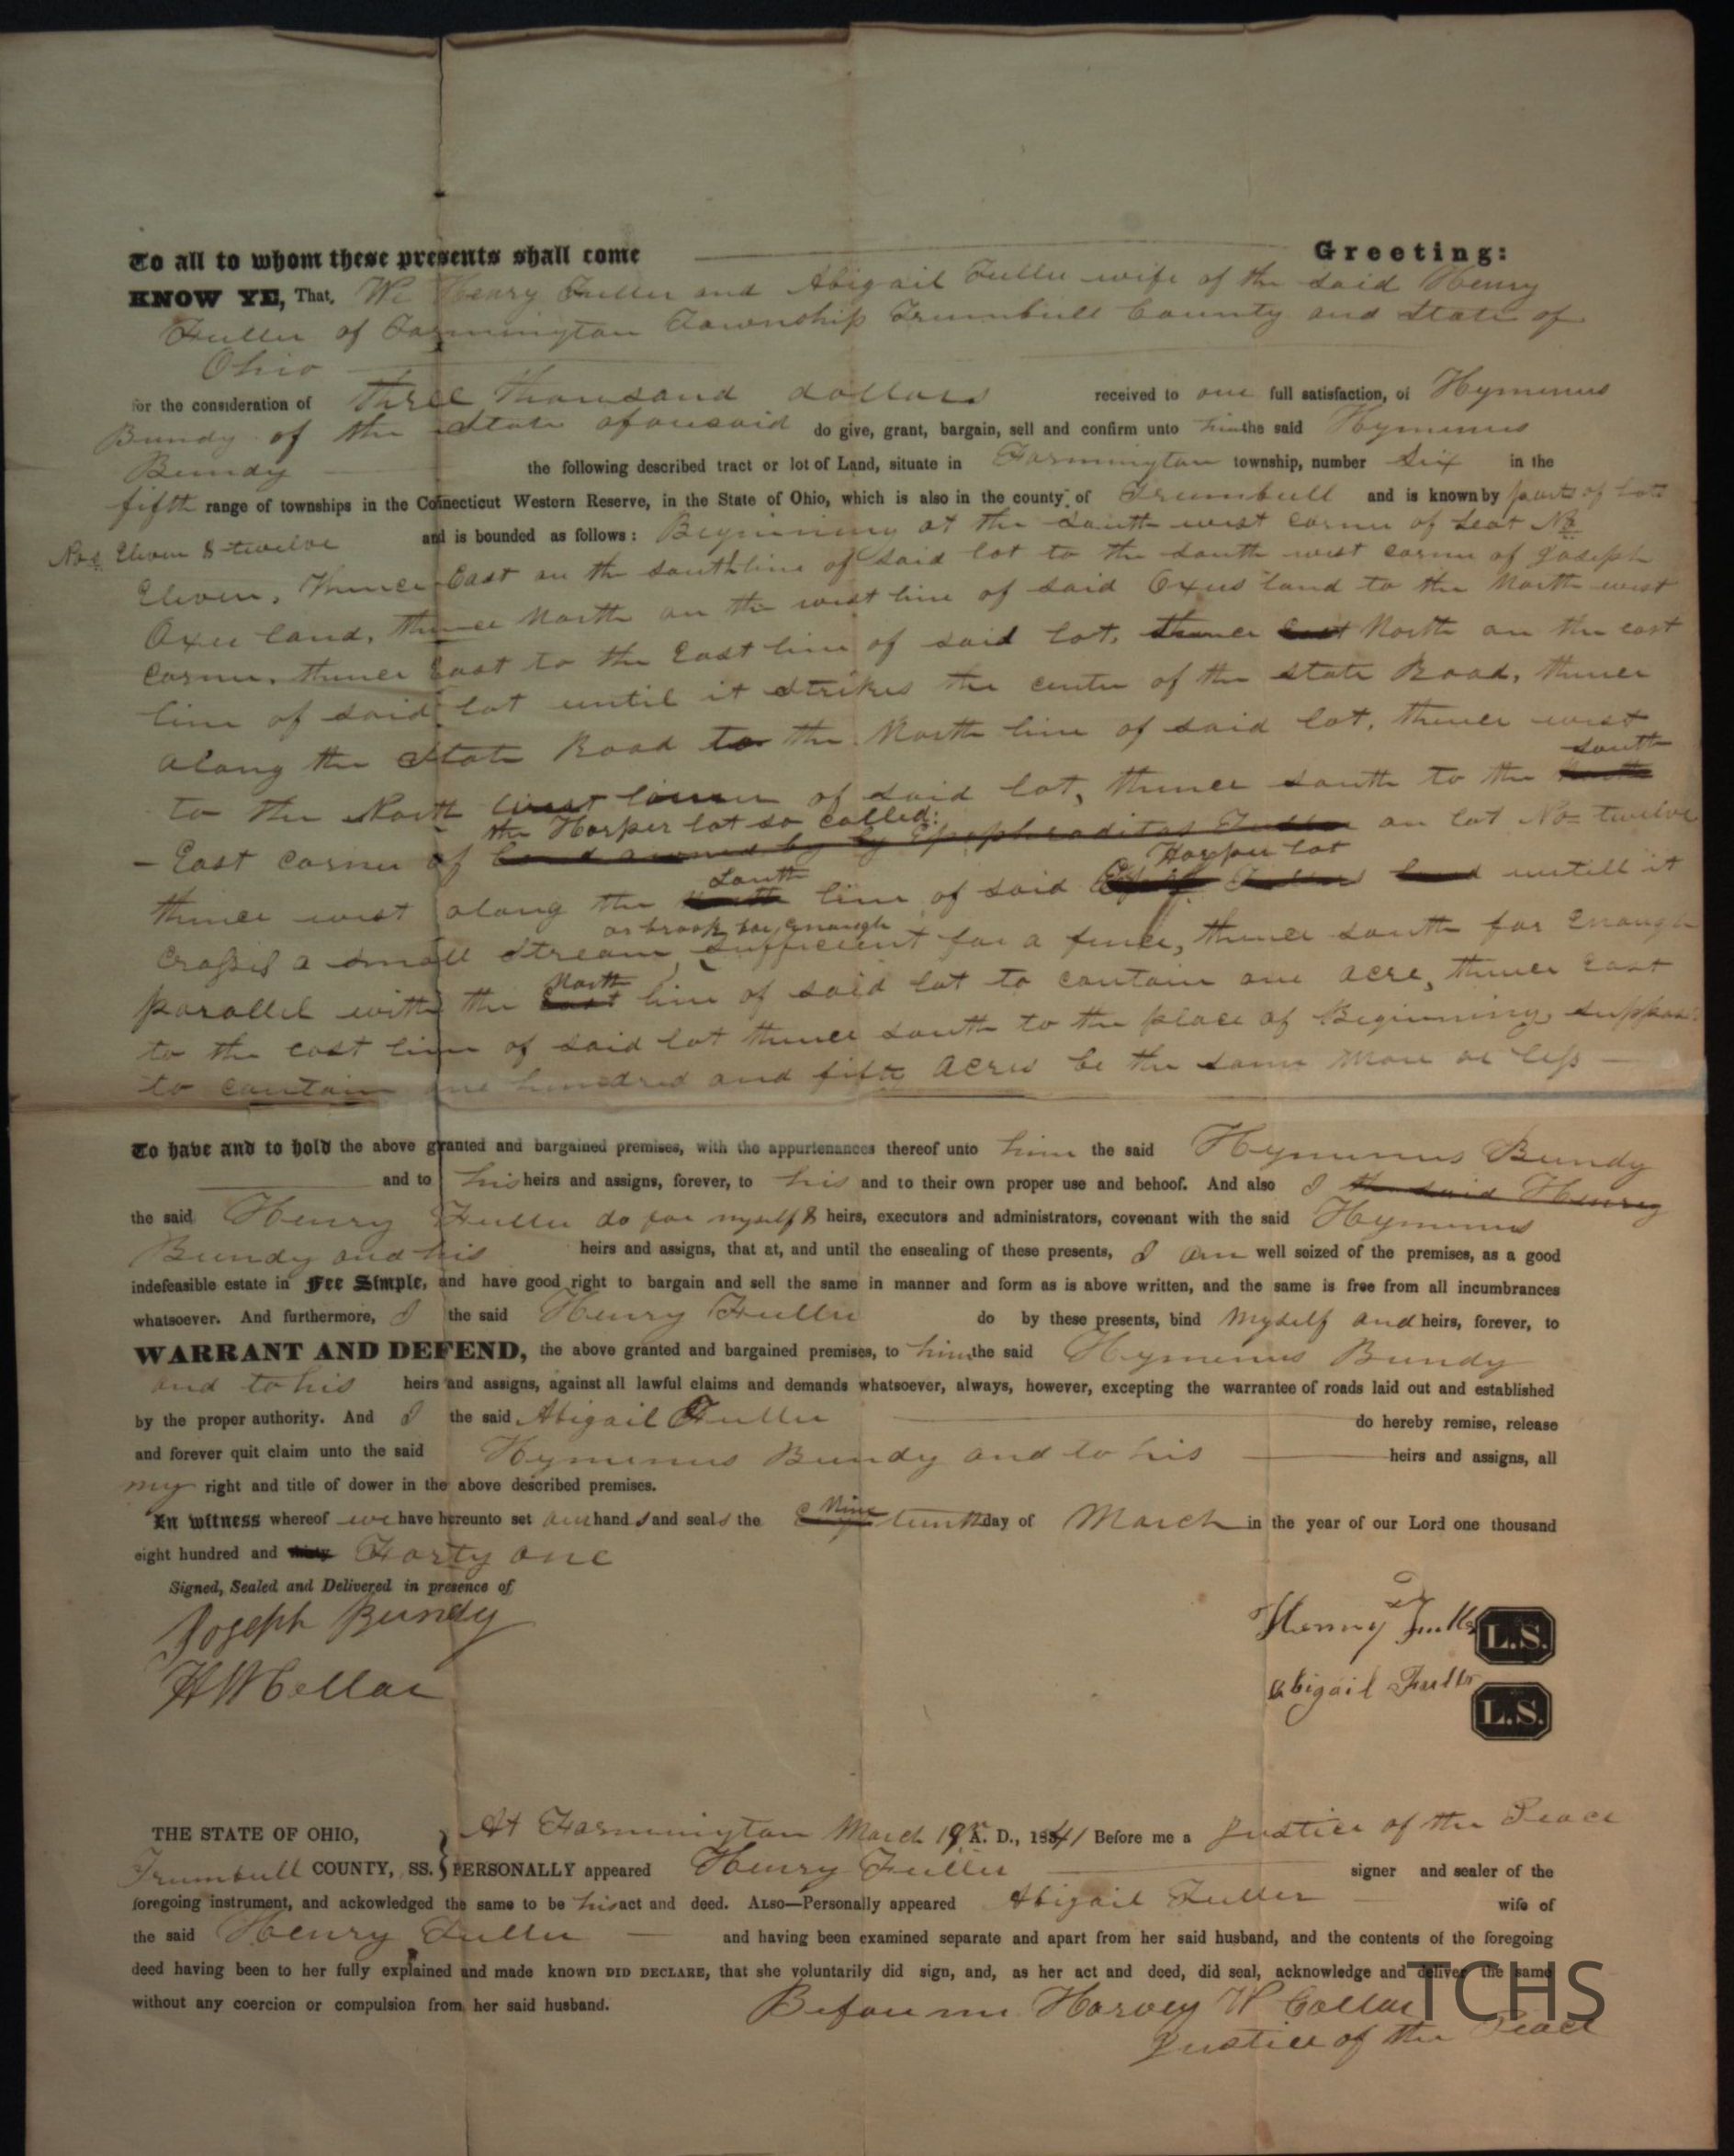 To all to whom these presents shall come Greeting:
KNOW YE, That, We Henry Fuller and Abigail Fuller wife of the said Henry
Fuller of Farmington Township Trumbull County and State of
Ohio
for the consideration of three thousand dollars received to our full satisfaction, of Hymenus
Bundy of the State aforesaid do give, grant, bargain, sell and confirm unto him the said Hymenus
Bundy the following described tract or lot of Land, situate in Farmington township, number Six in the
fifth range of townships in the Connecticut Western Reserve, in the State of Ohio, which is also in the county of Trumbull and is known by parts of lots
Nos Eleven & twelve and is bounded as follows: Beginning at the South west corner of Lot No
Eleven, Thence East on the south line of said lot to the South west corner of Joseph
Oxes land, thence North on the west line of said Oxes land to the North west
corner, thence East to the East line of said lot, thence North on the east
line of said lot until it strikes the center of the state Road, thence
along the State Road to the North line of said lot, thence west
to the North west corner of said lot, thence south to the south
East corner of the Harper lot so called: on lot No twelve
thence west along the South line of said Harper lot untill it
crosses a small stream or brook far enough sufficient for a fence, thence south far enough
parallel with the North line of said lot to contain one acre, thence East
to the east line of said lot thence south to the place of Beginning, suppos
to contain one hundred and fifty acres be the same more or less
To have and to hold the above granted and bargained premises, with the appurtenances thereof unto him the said Hymenus Bundy
and to his heirs and assigns, forever, to his and to their own proper use and behoof. And also I the said Henry
the said Henry Fuller do for myself & heirs, executors and administrators, covenant with the said Hymenus
Bundy and his heirs and assigns, that at, and until the ensealing of these presents, I am well seized of the premises, as a good
indefeasible estate in Fee Simple, and have good right to bargain and sell the same in manner and form as is above written, and the same is free from all incumbrances
whatsoever. And furthermore, I the said Henry Fuller do by these presents, bind myself and heirs, forever, to
WARRANT AND DEFEND, the above granted and bargained premises, to him the said Hymenus Bundy
and to his heirs and assigns, against all lawful claims and demands whatsoever, always, however, excepting the warrantee of roads laid out and established
by the proper authority. And I the said Abigail Fuller do hereby remise, release
and forever quit claim unto the said Hymenus Bundy and to his heirs and assigns, all
my right and title of dower in the above described premises.
In witness whereof we have hereunto set our hands and seals the Nineteenth day of March in the year of our Lord one thousand
eight hundred and Forty one
Signed, Sealed and Delivered in presence of
Joseph Bundy
H W Collar
Henry Fuller L.S.
Abigail Fuller L.S.
THE STATE OF OHIO, At Farmington March 19 A. D., 1841 Before me a Justice of the Peace
Trumbull COUNTY, SS. PERSONALLY appeared Henry Fuller signer and sealer of the
foregoing instrument, and ackowledged the same to be his act and deed. ALSO—Personally appeared Abigail Fuller wife of
the said Henry Fuller and having been examined separate and apart from her said husband, and the contents of the foregoing
deed having been to her fully explained and made known DID DECLARE, that she voluntarily did sign, and, as her act and deed, did seal, acknowledge and deliver the same
without any coercion or compulsion from her said husband. Before me Harvey W Collar
Justice of the Peace
TCHS